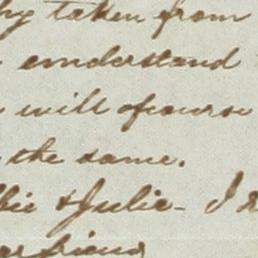 taken from
understand
will ofcourse
the same.
& Julie - I